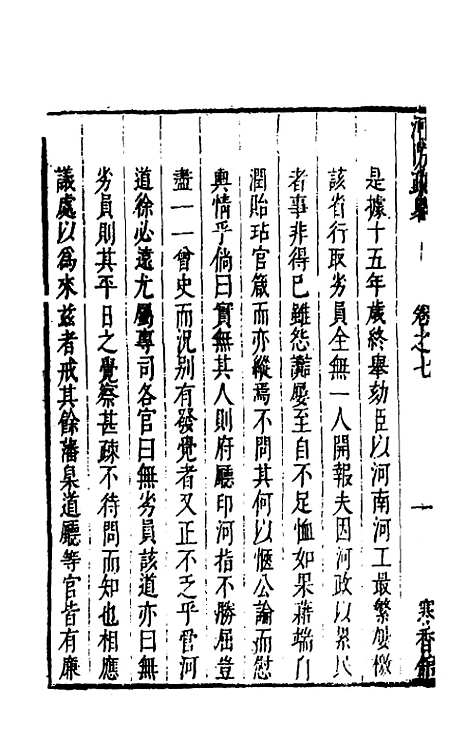 河防疏畧
卷之七
寒香館
是據十五年歲終舉劾臣以河南河工最繁屢檄
該省行取劣員全無一人開報夫因河政以累民
者事非得已雖怨讟屢至自不足恤如果藉端自
潤貽玷官箴而亦縱焉不問其何以愜公論而慰
輿情乎倘曰實無其人則府廳印河指不勝屈豈
盡一一曾史而況別有發覺者又正不乏乎管河
道徐必遠尤屬專司各官曰無劣員該道亦曰無
劣員則其平日之覺察甚疎不待問而知也相應
議處以為來兹者戒其餘藩臬道廳等官皆有廉